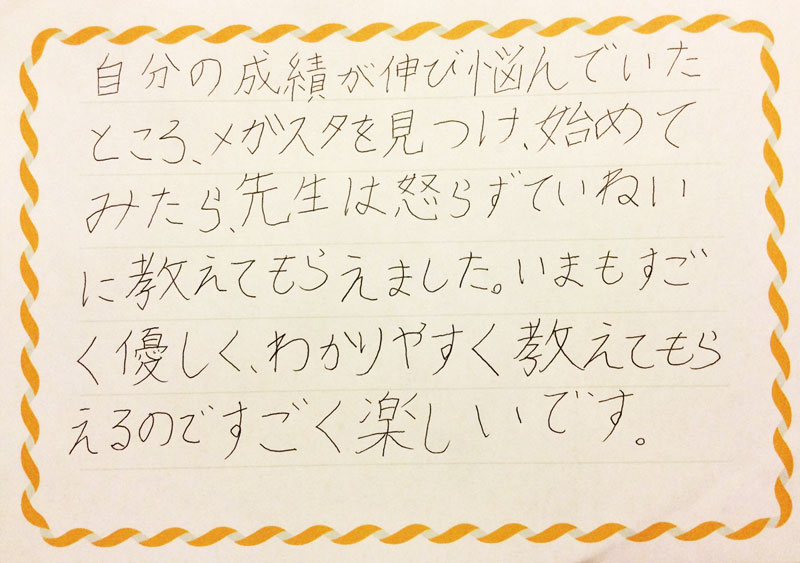 自分の成績が伸び悩んでいた
ところ、メガスタを見つけ、始めて
みたら、先生は怒らずていねい
に教えてもらえました。いまもすご
く優しく、わかりやすく教えてもら
えるのですごく楽しいです。